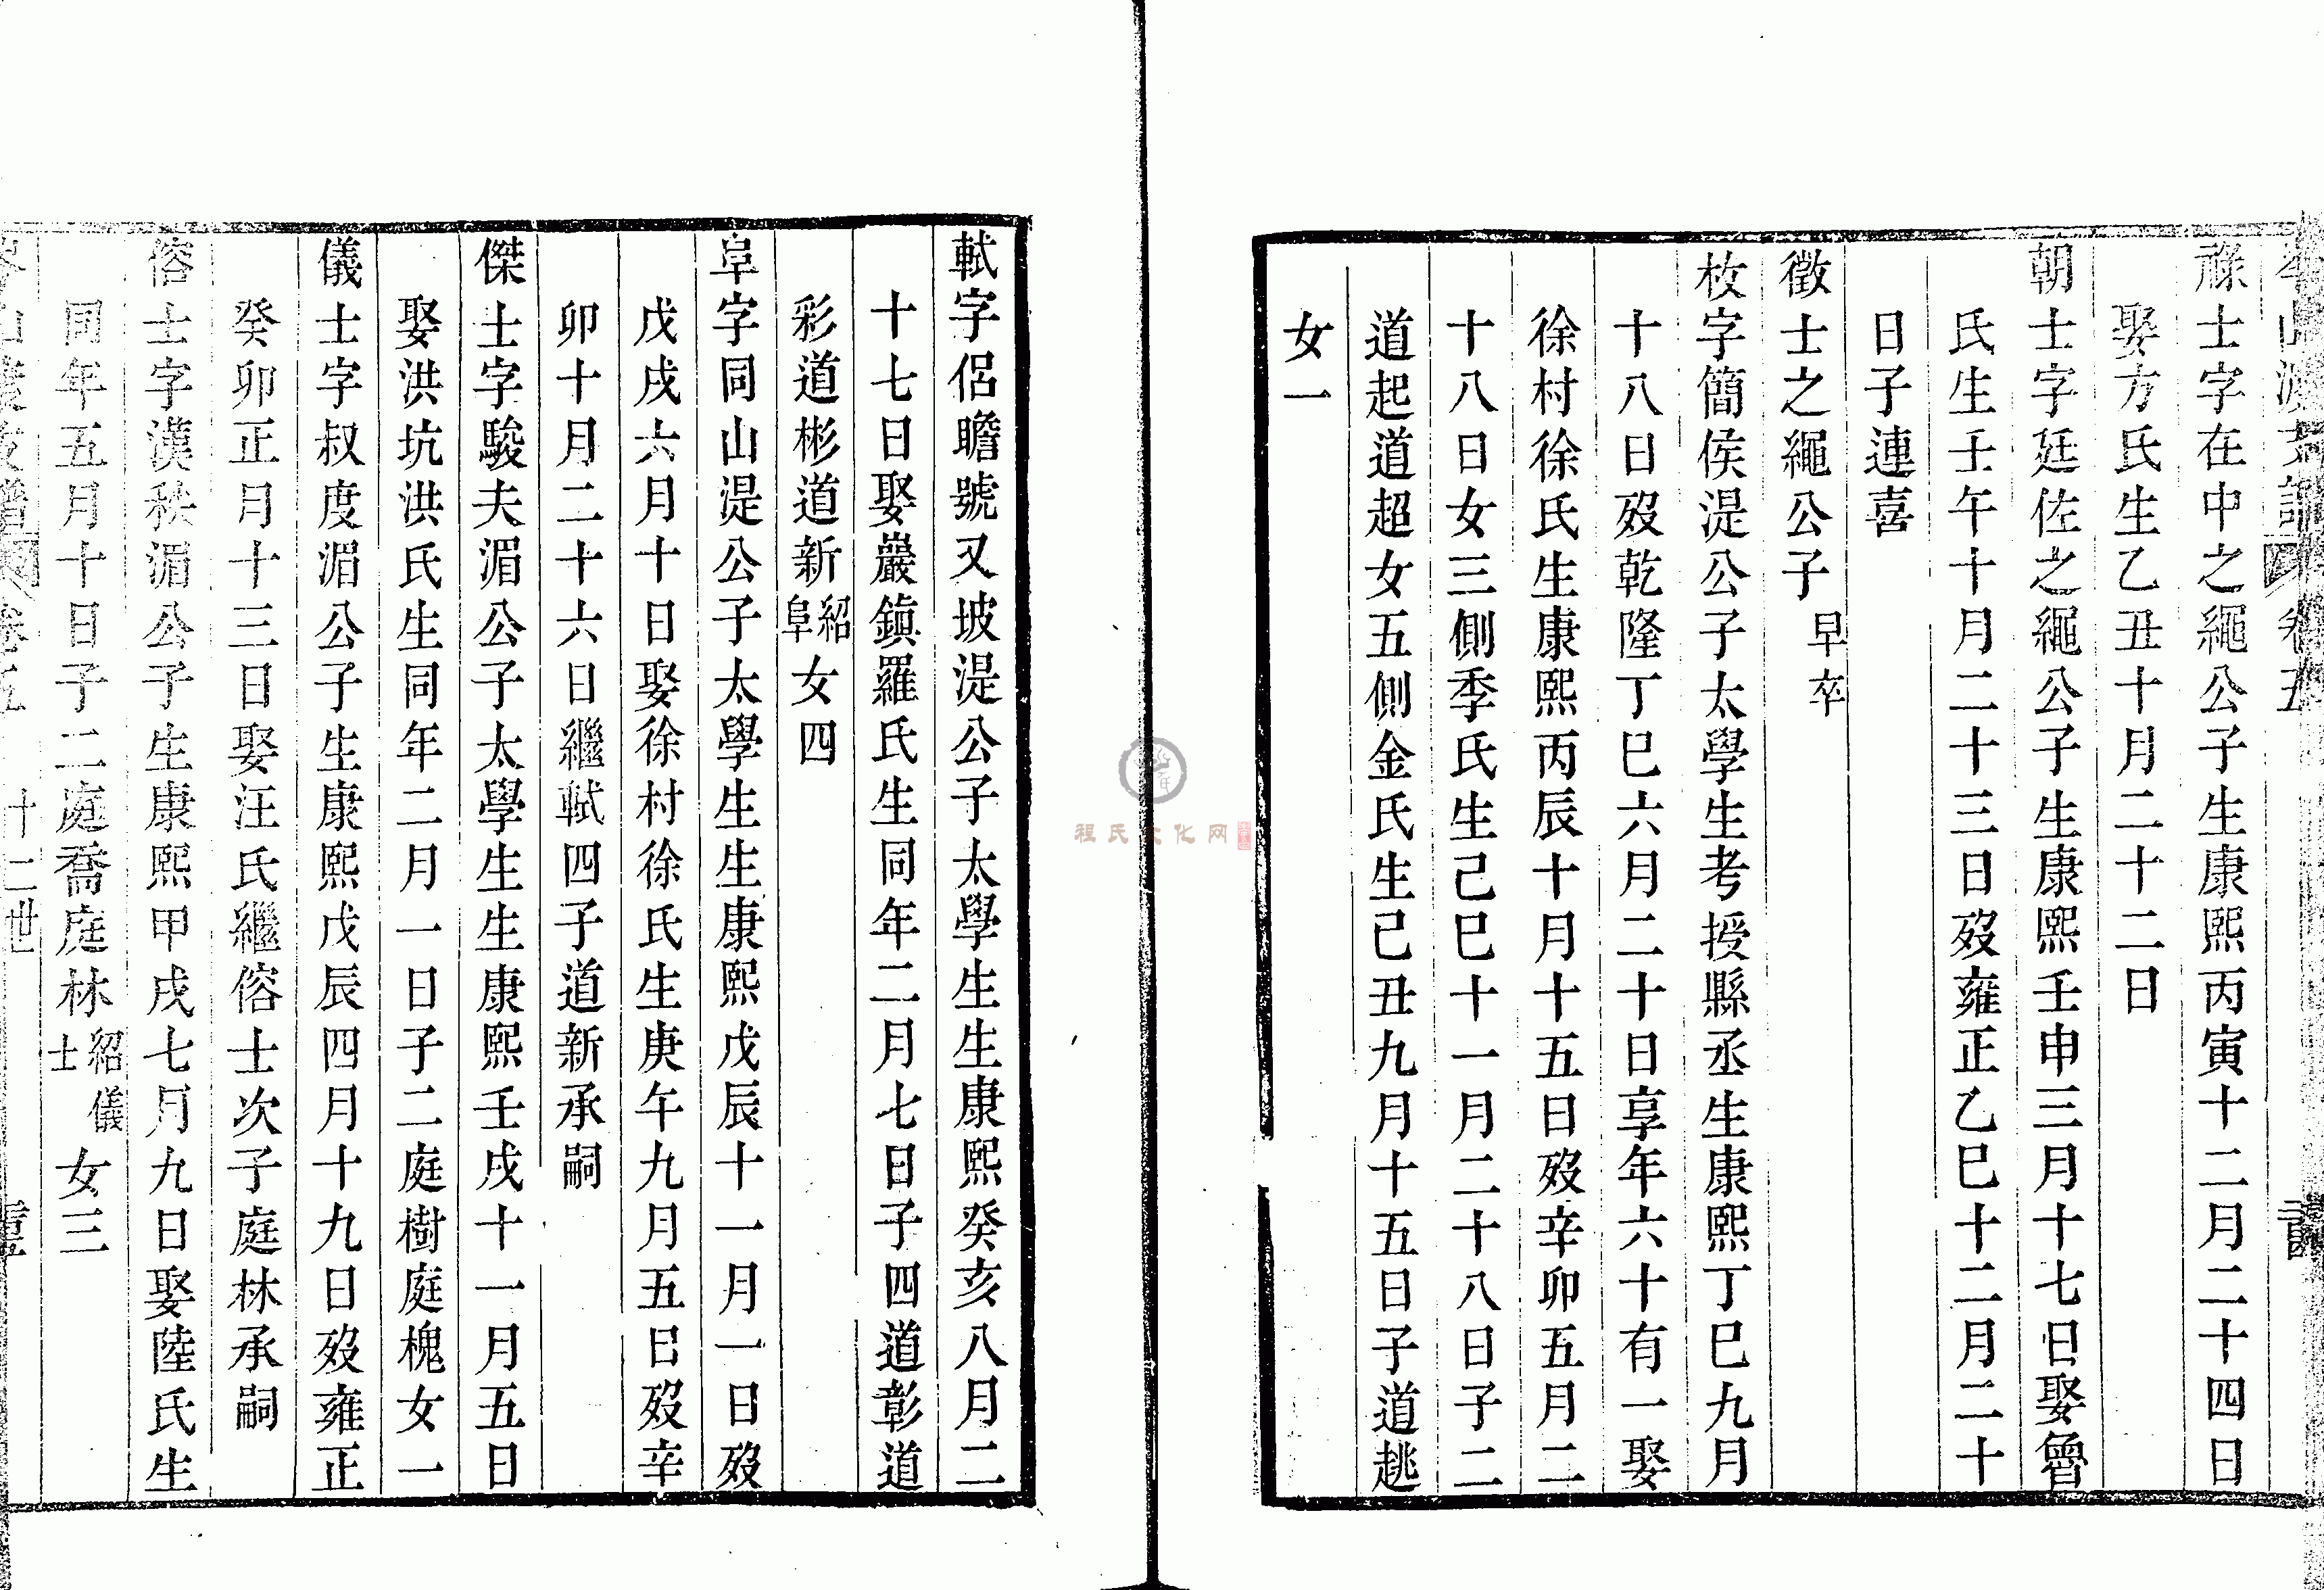 祿士字在中之繩公子生康熙丙寅十二月二十四日
娶方氏生乙丑十月二十二日
朝士字廷佐之繩公子生康熙壬申三月十七日娶魯
氏生壬午十月二十三日歿雍正乙巳十二月二十
日子連喜
徵士之繩公子早卒
枚字簡侯湜公子太學生考授縣丞生康熙丁巳九月
十八日歿乾隆丁巳六月二十日享年六十有一娶
徐村徐氏生康熙丙辰十月十五日歿辛卯五月二
十八日女三側季氏生己巳十一月二十八日子二
道起道超女五側金氏生己丑九月十五日子道趒
女一
軾字侶瞻號又坡湜公子太學生生康熙癸亥八月二
十七日娶巖鎮羅氏生同年二月七日子四道彰道
彩道彬道新紹阜女四
阜字同山湜公子太學生生康熙戊辰十一月一日歿
戊戌六月十日娶徐村徐氏生庚午九月五日歿辛
卯十月二十六日繼軾四子道新承嗣
傑士字駿夫湄公子太學生生康熙壬戌十一月五日
娶洪坑洪氏生同年二月一日子二庭樹庭槐女一
儀士字叔度湄公子生康熙戊辰四月十九日歿雍正
癸卯正月十三日娶汪氏繼傛士次子庭林承嗣
傛士字漢秩湄公子生康熙甲戌七月九日娶陸氏生
同年五月十日子二庭喬庭林紹儀士女三
卷五 十二世
程氏文化网